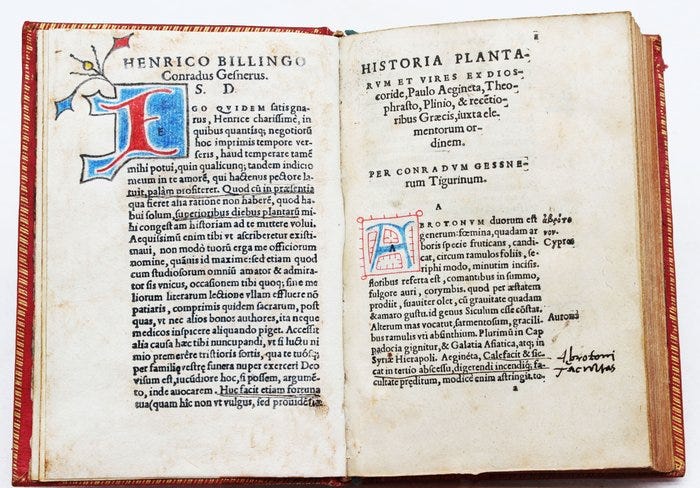 HENRICO BILLINGO
Conradus Gesnerus.
S. D
EGO QVIDEM satis gna-
rus, Henrice charissimè, in
quibus quantisq; negotiorũ
hoc imprimis tempore ver-
seris, haud temperare tamẽ
mihi potui, quin qualicunq; tandem indicio
meum in te amorẽ, qui hactenus pectore la-
tuit, palàm profiteret. Quod cũ in præsentia
qua fieret alia ratione non haberẽ, quod ha-
bui solum, superioribus diebus plantarũ mi-
hi congestam historiam ad te mittere volui.
Aequissimũ enim tibi vt ascriberetur existi-
maui, non modò tuorũ erga me officiorum
nomine, quàm id maximè: sed etiam quod
cum studiosorum omniũ amator & admira-
tor sis vnicus, occasionem tibi quoq; sine me
liorum literarum lectione vllam effluere nõ
patiaris, comprimis quidem sacrarum, post
quas, vt nec alios bonos authores, ita neque
medicos inspicere aliquando piget. Accessit
alia causa hæc tibi nuncupandi, vt si luctu ni
mio premerère tristioris sortis, qua te tuosq;
per familiæ vestræ funera nuper exerceri Deo
visum est, iucũdiore hoc, si possem, argumẽ-
to, inde auocarem. Huc facit etiam fortuna
tua (quam hic non vt vulgus, sed prouidẽtiæ
HISTORIA PLANTA-
RVM ET VIRES EX DIOS-
coride, Paulo Aegineta, Theo-
phrasto, Plinio, & recẽtio-
ribus Græcis, iuxta ele-
mentorum or-
dinem.
PER CONRADVM GESSNE-
rum Tigurinum.
A
ABROTONVM duorum est
generum: fœmina, quadam ar
boris specie fruticans, candi-
cat, circum ramulos foliis, se-
riphi modo, minutim incisis.
floribus referta est, comantibus in summo,
fulgore auri, corymbis. quod per æstatem
prodiit, suauiter olet, cũ grauitate quadam
& amaro gustu. id genus Siculum esse cõstat.
Alterum mas vocatur, sarmentosum, gracili-
bus ramulis vti absinthium. Plurimũ in Cap
padocia gignitur, & Galatia Asiæ, atq; in
Syriæ Hierapoli. Aeginéta, Calefacit & sic-
cat in tertio abscessu, digerendi incidẽdiq; fa-
cultate preditum, modicè enim astringit. to-
a
ἀβρότο
νον.
Cypros
Aurona
Abrotoni